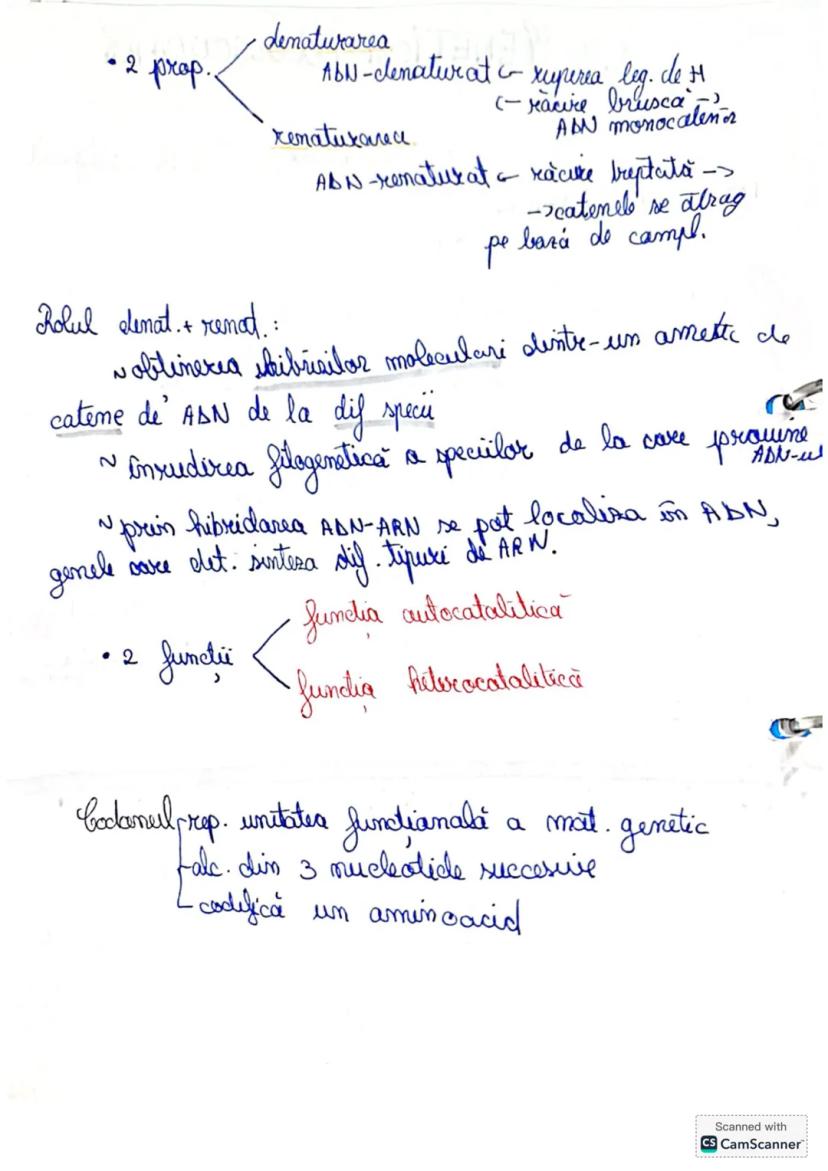 • 2 prop.
denaturarea
ADN-denaturat ← ruperea leg. de H
← răcire bruscă →
ADN monocatenar
renaturarea
ADN-renaturat ← răcire treptată →
→ catenele se atrag
pe bază de compl.
Rolul denat. + renat.:
~ obținerea hibrizilor moleculari dintr-un amestec de
catene de ADN de la dif specii
~ înrudirea filogenetică a speciilor de la care provine
ADN-ul
~ prin hibridarea ADN-ARN se pot localiza în ADN,
genele care det. sinteza dif. tipuri de ARN.
• 2 funcții
funcția autocatalitică
funcția heterocatalitică
Codonul rep. unitatea funcțională a mat. genetic
alc. din 3 nucleotide succesive
codifică un aminoacid
Scanned with
CS CamScanner